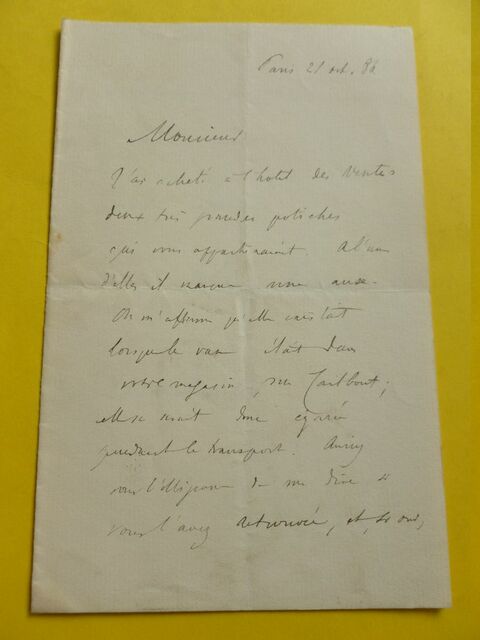 Paris 21 oct. 86
Monsieur
J'ai acheté à l'hotel des Ventes
deux très grandes potiches
qui vous appartenaient. A l'une
d'elles il manque une anse.
On m'affirme qu'elle existait
lorsque le vase était dans
votre magasin, rue Taitbout;
elle se serait donc égarée
pendant le transport. Auriez
vous l'obligeance de me dire si
vous l'avez retrouvée, et, si oui,